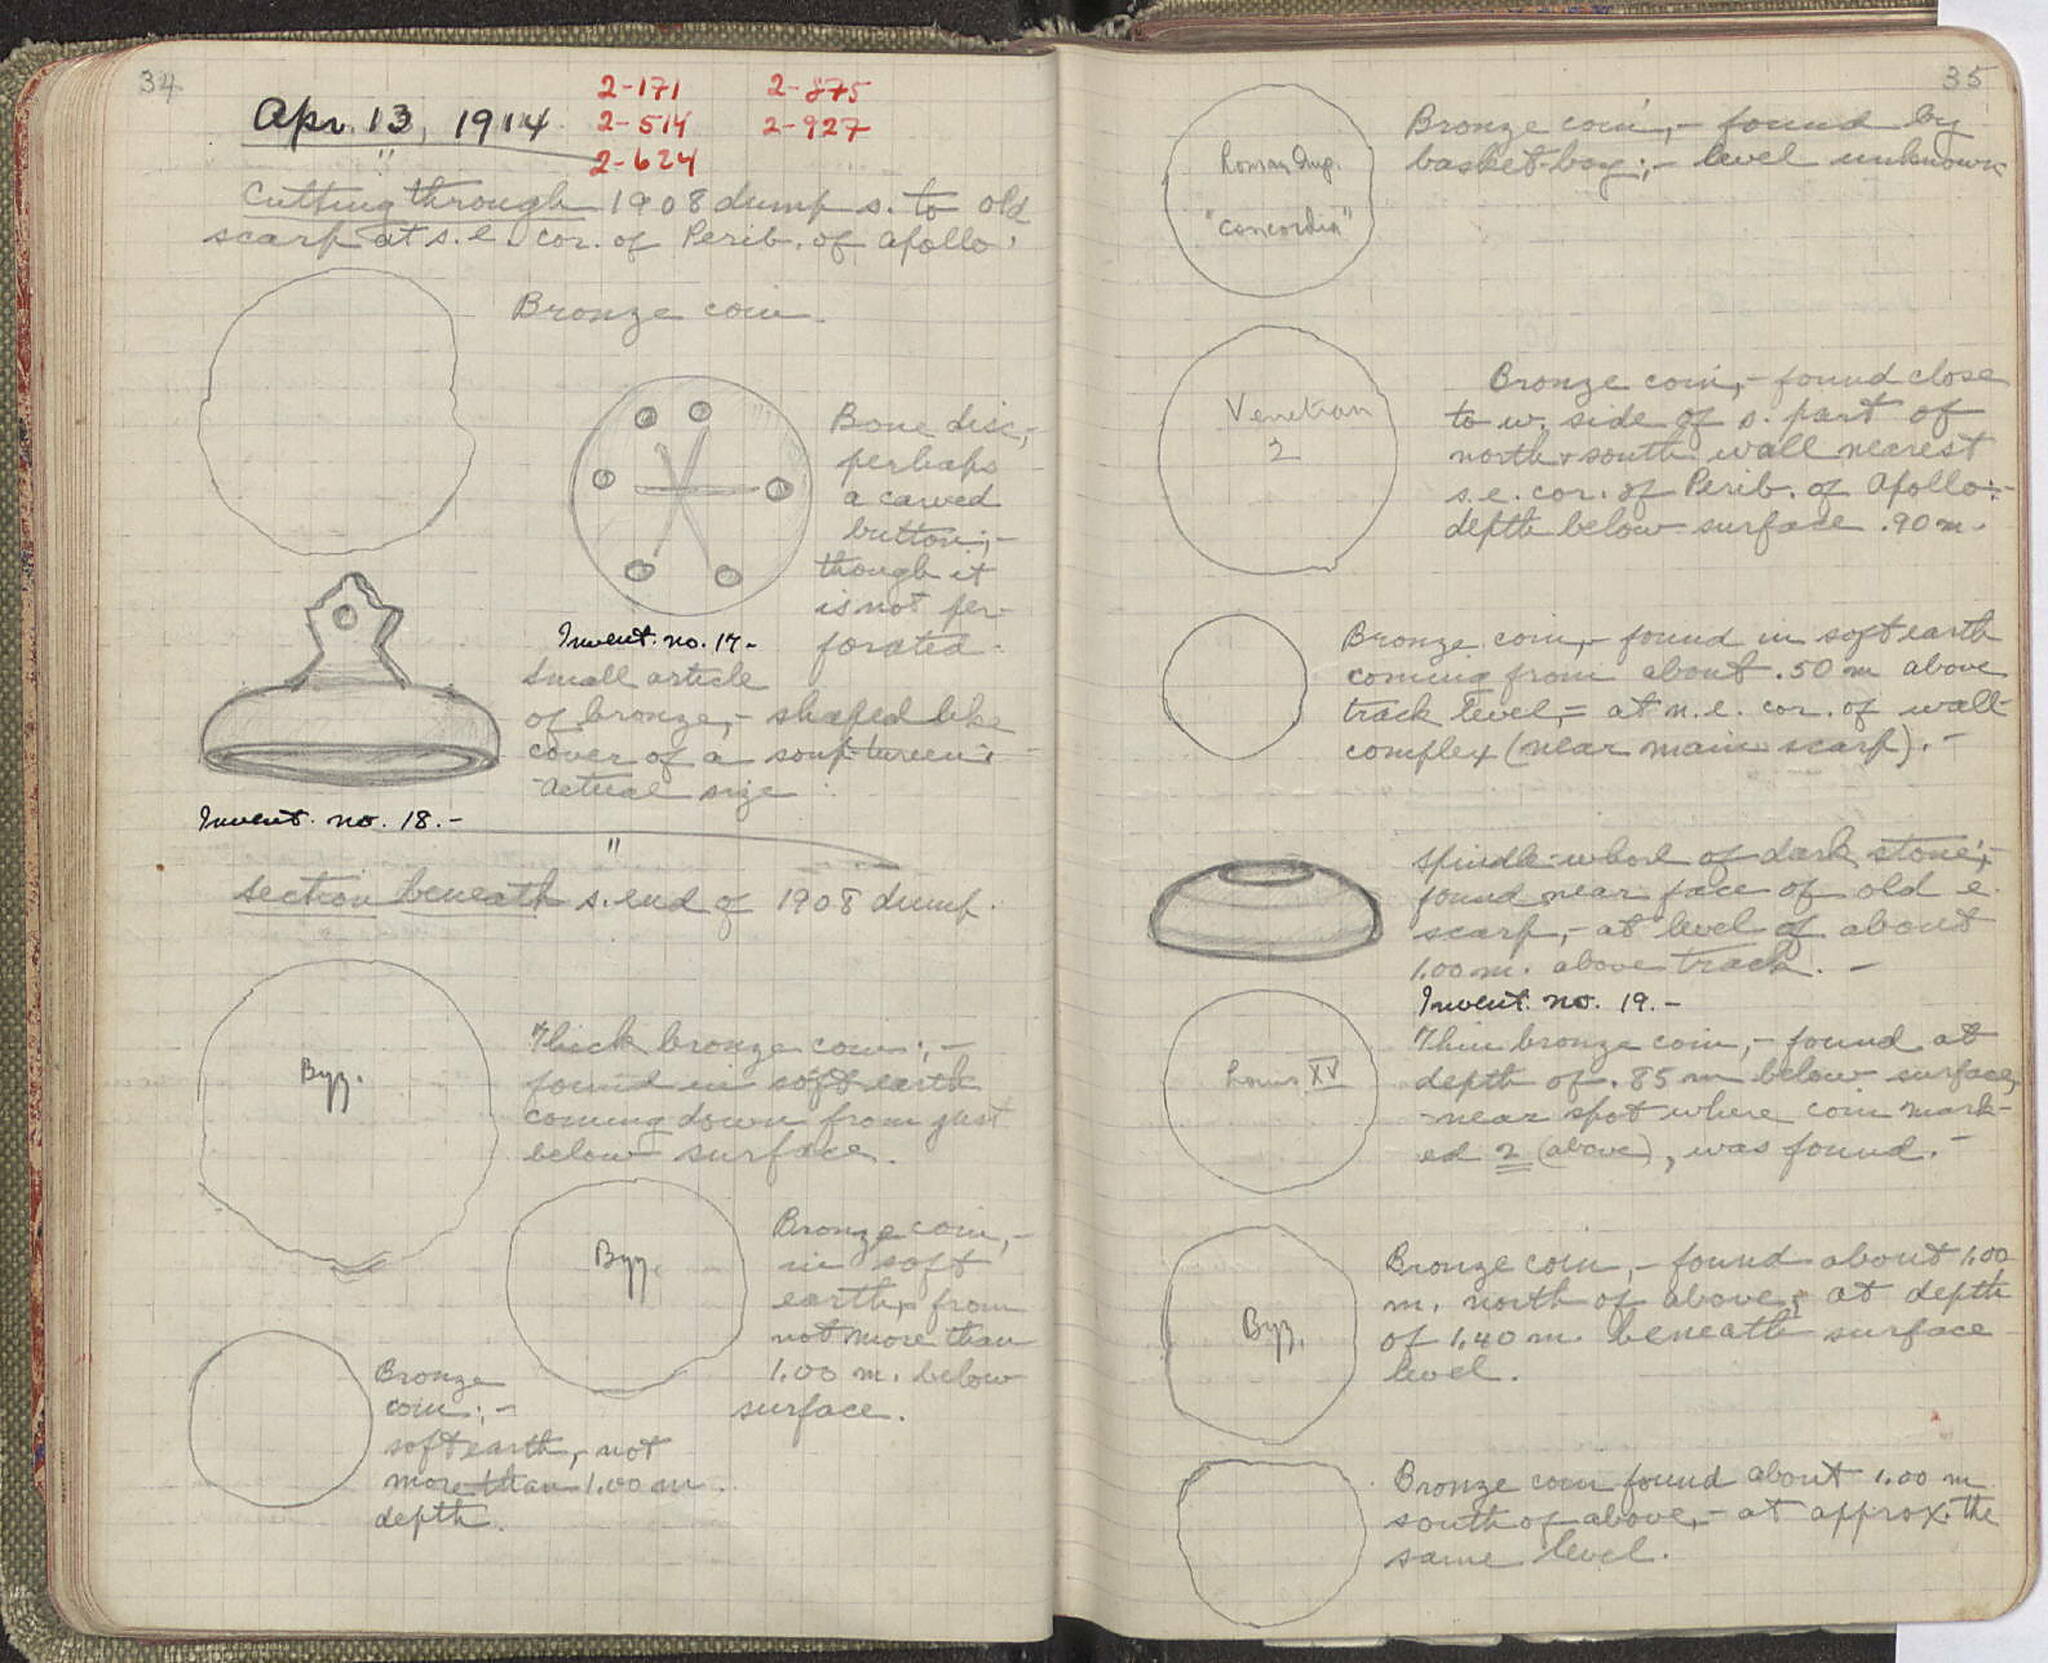 34
Apr. 13, 1914
2-171
2-875
2-514
2-927
2-624
"
Cutting through 1908 dump s. to old
scarp at s.e. cor. of Perib. of Apollo.
Bronze coin.
Bone disc,-
perhaps
a carved
button;-
though it
is not per-
forated.
Invent. no. 17.-
Small article
of bronze,- shaped like
cover of a soup-tureen:
-Actual size
Invent. no. 18.-
"
Section beneath s. end of 1908 dump.
Byz.
Thick bronze coin;-
found in soft earth
coming down from just
below surface.
Byz.
Bronze coin,-
in soft
earth,- from
not more than
1.00 m. below
surface.
Bronze
coin;-
soft earth,- not
more than 1.00 m.
depth.
35
Roman Imp.
"Concordia"
Bronze coin,- found by
basket-boy;- level unknown
Venetian
2
Bronze coin,- found close
to w. side of s. part of
north & south wall nearest
s.e. cor. of Perib. of Apollo:-
depth below surface .90 m.
Bronze coin,- found in soft earth
coming from about .50 m above
track level,- at n.e. cor. of wall-
complex (near main scarp).-
Spindle-whorl of dark stone;-
found near face of old e.
scarp,- at level of about
1.00 m. above track.-
Invent. no. 19.-
Louis XV
Thin bronze coin,- found at
depth of .85 m below surface,
-near spot where coin mark-
ed 2 (above), was found.-
Byz.
Bronze coin,- found about 1.00
m. north of above,- at depth
of 1.40 m. beneath surface
level.
Bronze coin found about 1.00 m
south of above,- at approx. the
same level.